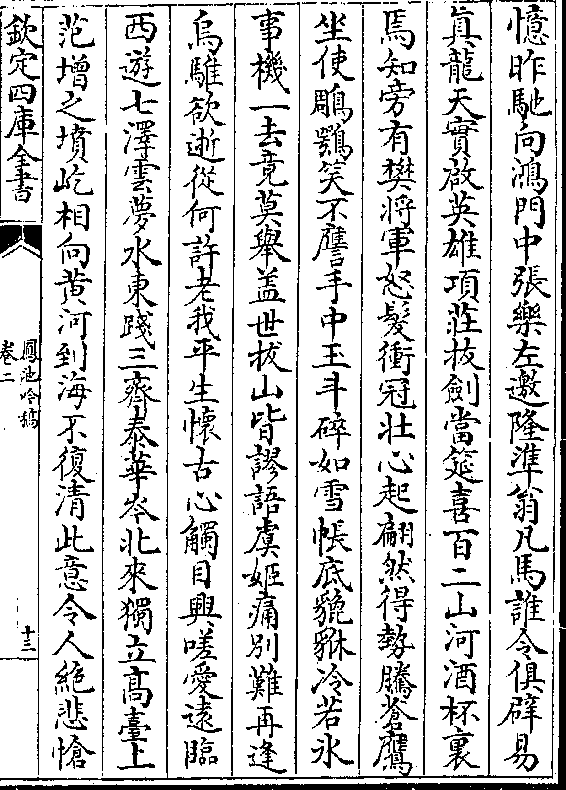 憶昨馳向鴻門中張樂左邀隆準翁凡馬誰令俱辟易
真龍天實啟英雄項莊拔劍當筵喜百二山河酒杯裏
焉知旁有樊將軍怒髮衝冠壯心起翩然得勢騰蒼鷹
坐使鵰鶚笑不譍手中玉斗碎如雪帳底貔貅冷若氷
事機一去竟莫舉盖世拔山皆謬語虞姬痛别難再逢
烏騅欲逝從何許老我平生懷古心觸目興嗟愛遠臨
西遊七澤雲夢水東踐三齊泰華岑北來獨立髙臺上
范增之墳屹相向黄河到海不復清此意令人絶悲愴
欽定四庫全書
鳳池吟稿
卷二
十三